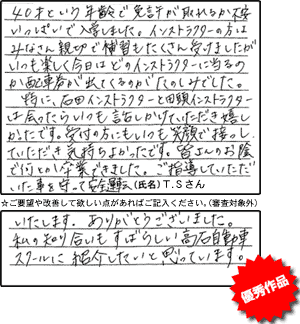 40才という年齢で免許が取れるか不安
いっぱいで入学しました。インストラクターの方は
みなさん親切で補習もたくさん受けましたが
いつも楽しく今日はどのインストラクターに当るの
か配車券が出てくるのがたのしみでした。
特に、石田インストラクターと田頭インストラクター
は会ったらいつも話しかけていただき嬉し
かったです。受付の方にもいつも笑顔で接っし
ていただき気持ちよかったです。皆さんのお陰
で何とか卒業できました。ご指導していただ
いた事を守って安全運転 (氏名) T.Sさん
☆ご要望や改善して欲しい点があればご記入ください。(審査対象外)
いたします。ありがとうございました。
私の知り合いもすばらしい高石自動車
スクールに紹介したいと思っています。
優秀作品